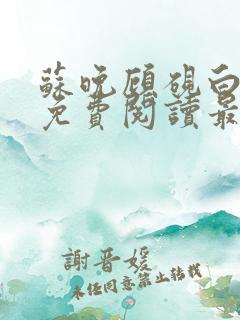 蘇晚顧硯白
免費閱讀最
謝晋媛
未經同意禁止轉載